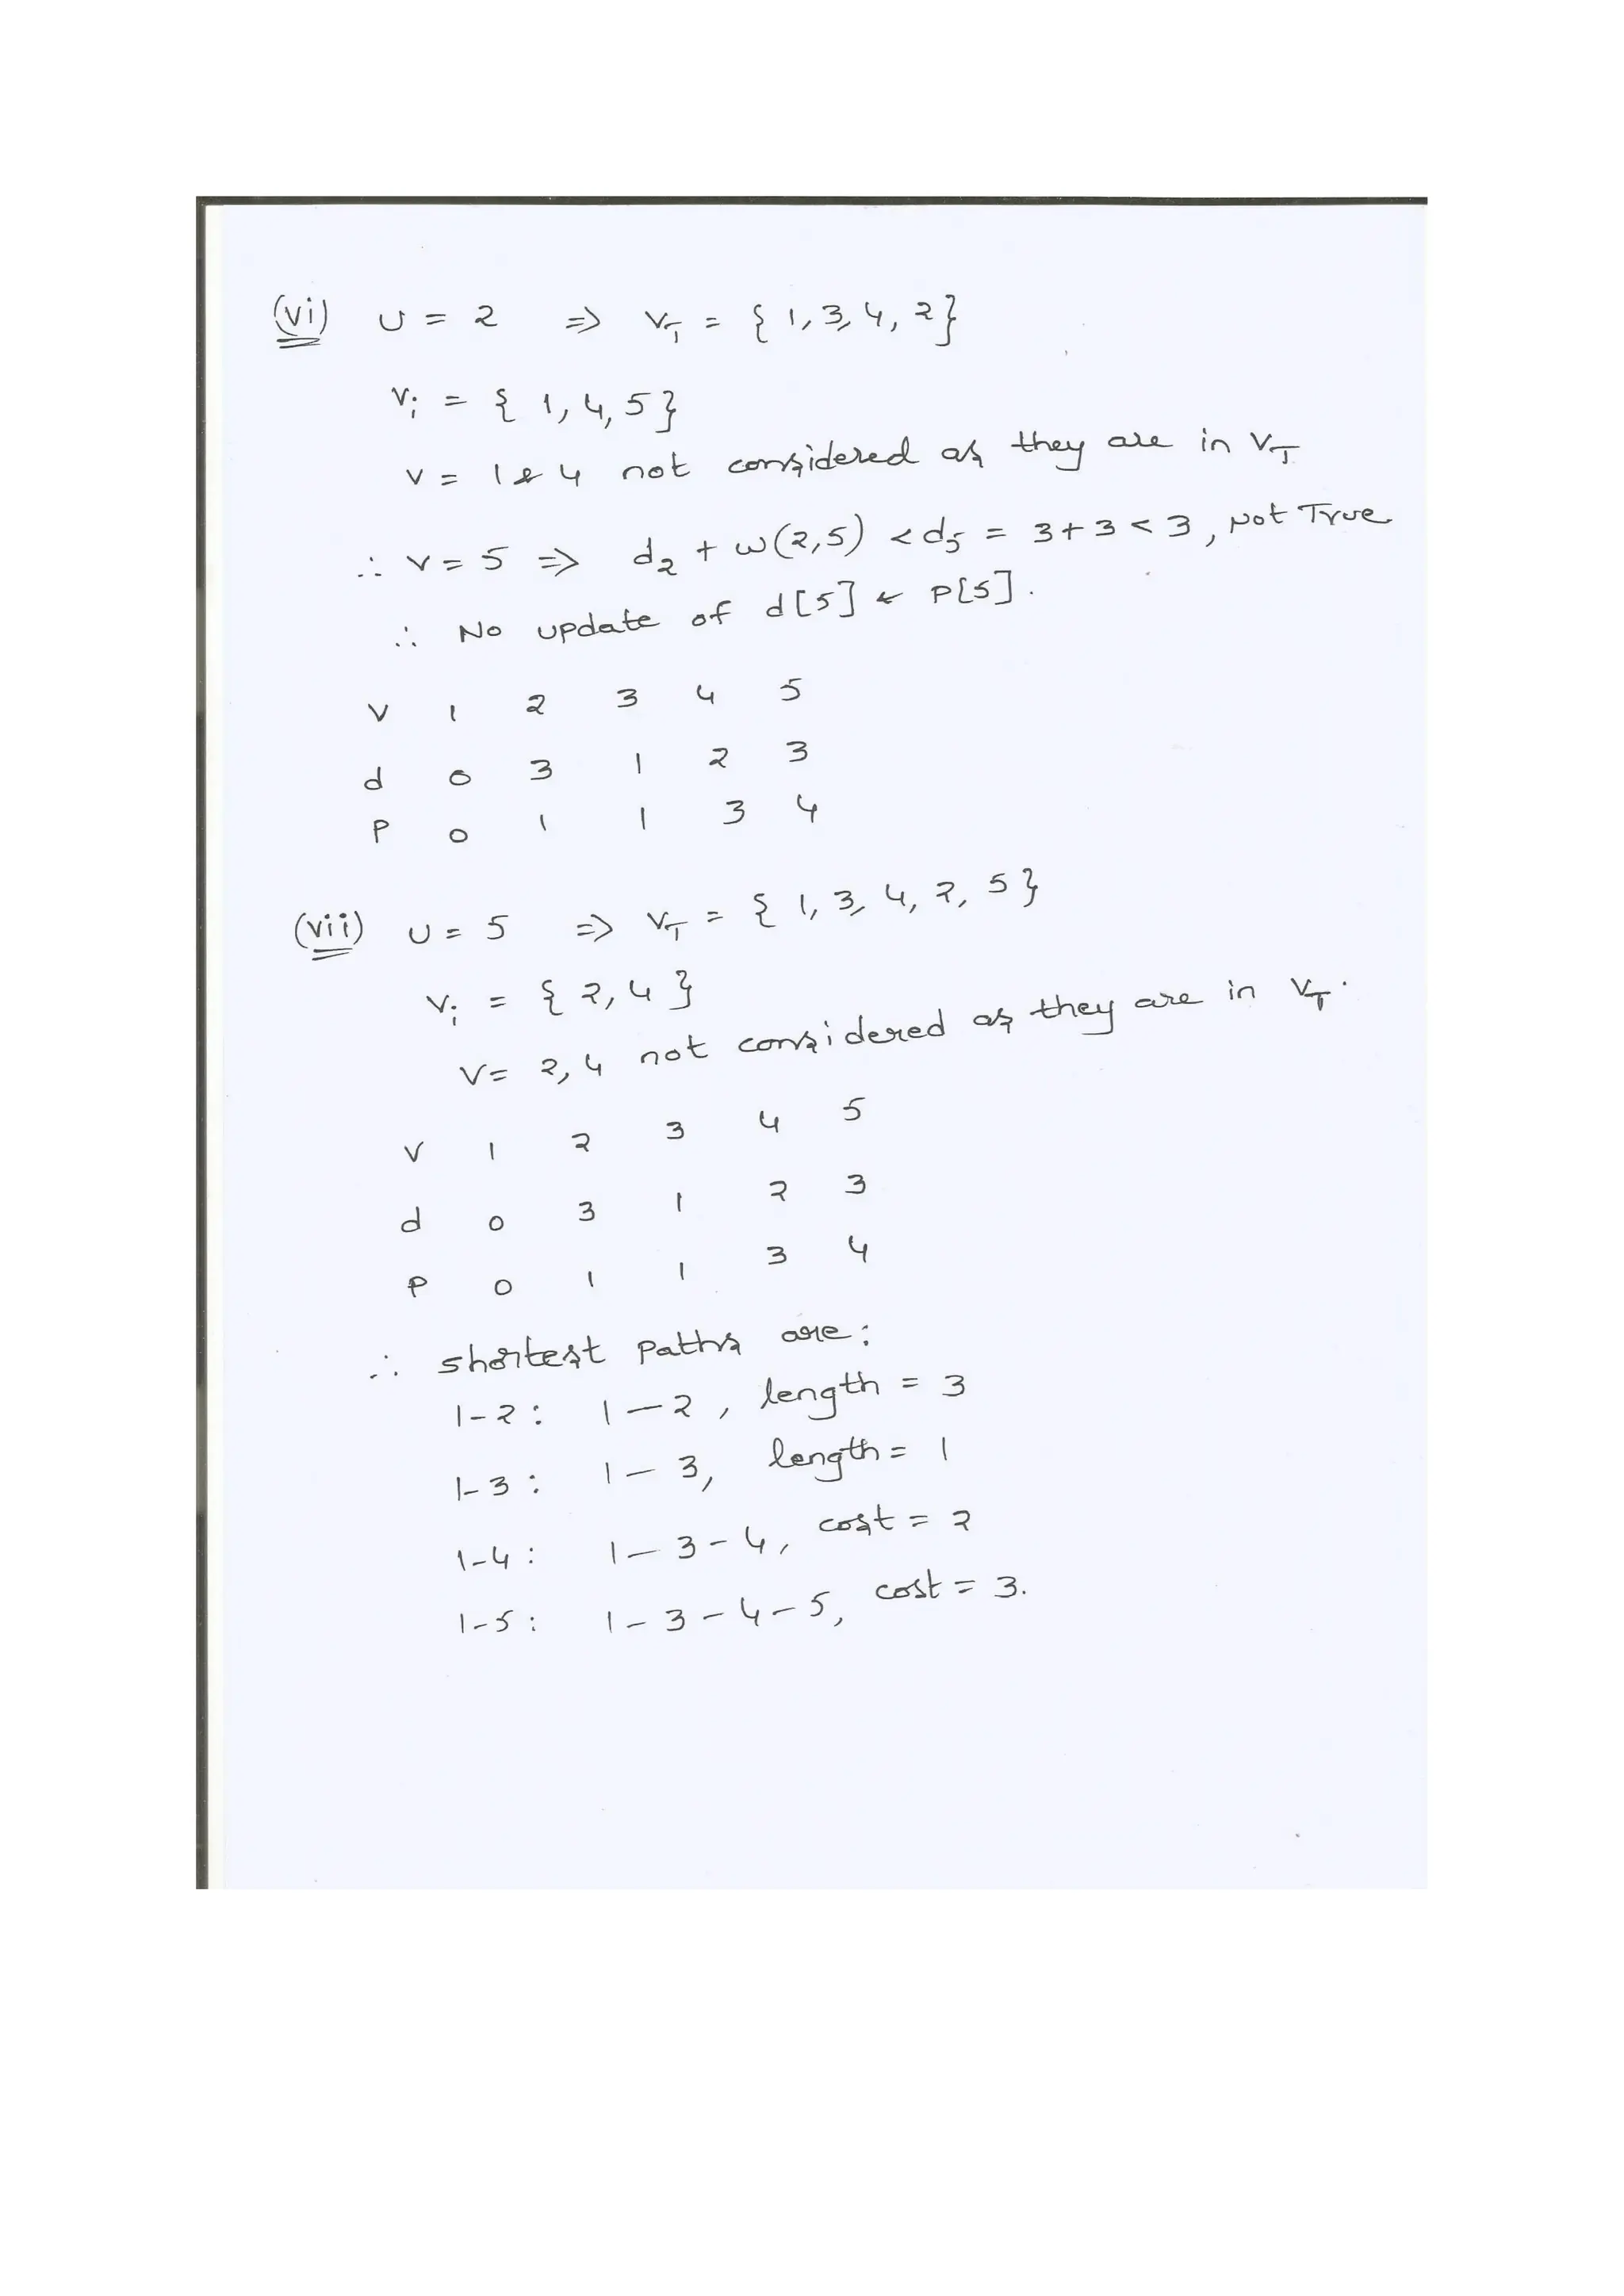 (vi) U = 2 ⇒ V_T = { 1, 3, 4, 2}
V_i = { 1, 4, 5}
V = 1 & 4 not considered as they are in V_T
∴ V = 5 ⇒ d_2 + w(2,5) < d_5 = 3+3 < 3, Not True
∴ No update of d[5] & P[5].
V 1 2 3 4 5
d 0 3 1 2 3
P 0 1 1 3 4
(vii) U = 5 ⇒ V_T = { 1, 3, 4, 2, 5}
V_i = { 2, 4 }
V = 2, 4 not considered as they are in V_T.
V 1 2 3 4 5
d 0 3 1 2 3
P 0 1 1 3 4
∴ shortest paths are:
1-2: 1-2, length = 3
1-3: 1-3, length = 1
1-4: 1-3-4, cost = 2
1-5: 1-3-4-5, cost = 3.